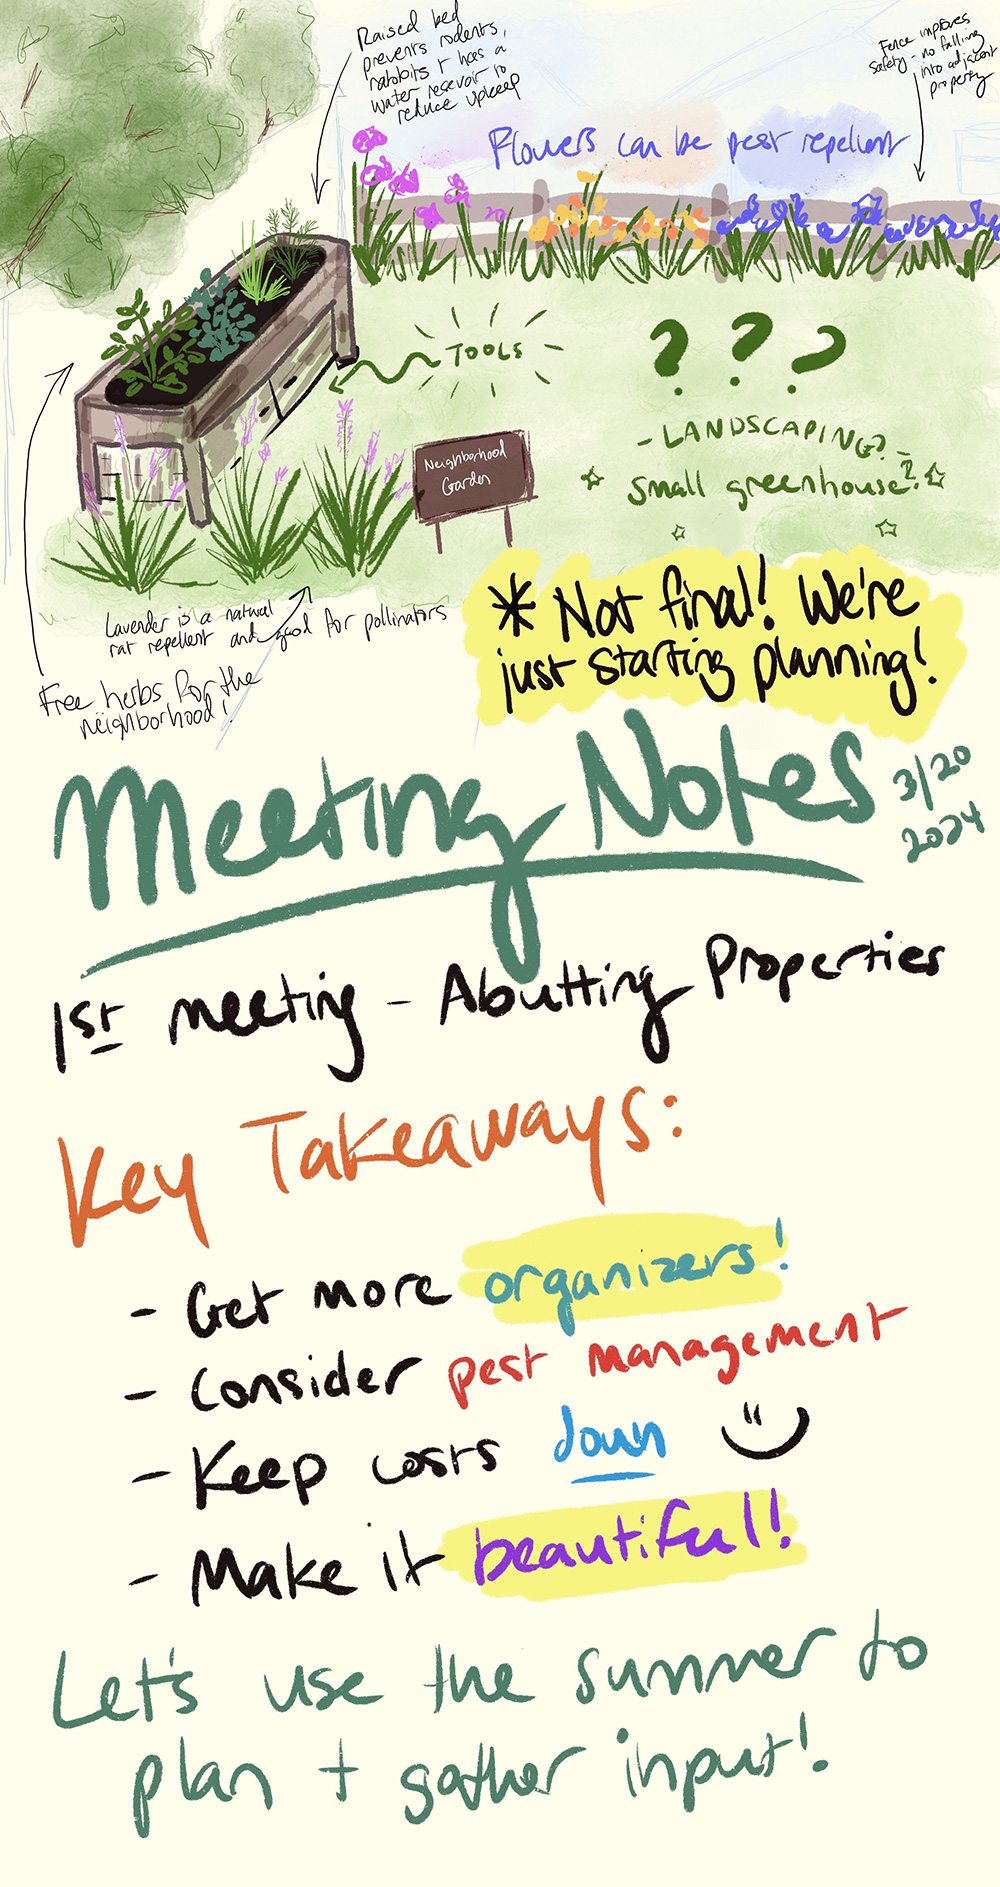 Raised bed
prevents rodents,
rabbits + has a
water reservoir to
reduce upkeep
Fence improves
safety - no falling
into adjacent
property
Flowers can be pest repellent
TOOLS
? ? ?
- LANDSCAPING? -
small greenhouse?
Neighborhood
Garden
Lavender is a natural
rat repellent and good for pollinators
Free herbs for the
neighborhood!
* Not final! We're
just starting planning!
Meeting Notes
3/20
2024
1st meeting - Abutting Properties
Key Takeaways:
- Get more organizers!
- Consider pest management
- Keep costs down
- Make it beautiful!
Let's use the summer to
plan + gather input!